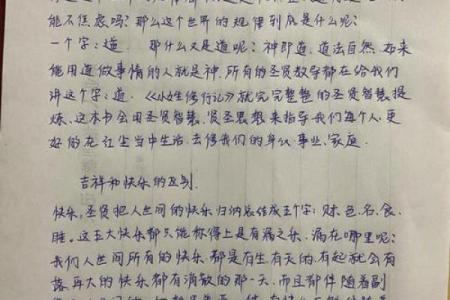 能不焦虑吗？那么这个世界的规律到底是什么呢？
一个字：道．那什么又是道呢？神即道，道法自然，如来
能用道做事情的人就是神．所有的圣贤教导都在给我们
讲这个字：道．《心性修行记》就完完整整的圣贤智慧提
炼．这本书会用圣贤智慧、圣贤思想来指导我们每个人，更
好的在红尘当中生活，去修我们的身心、事业、家庭．
吉祥和快乐的区别．
快乐，圣贤把人世间的快乐归纳总结成五个字：财、色、名、食、
睡，这五大快乐都只能称得上是有漏之乐，漏在哪里呢？
我们人世间所有的快乐都是有生有灭的，有起就会有
落，再大的快乐都有消散的那一天，而且都伴随着副